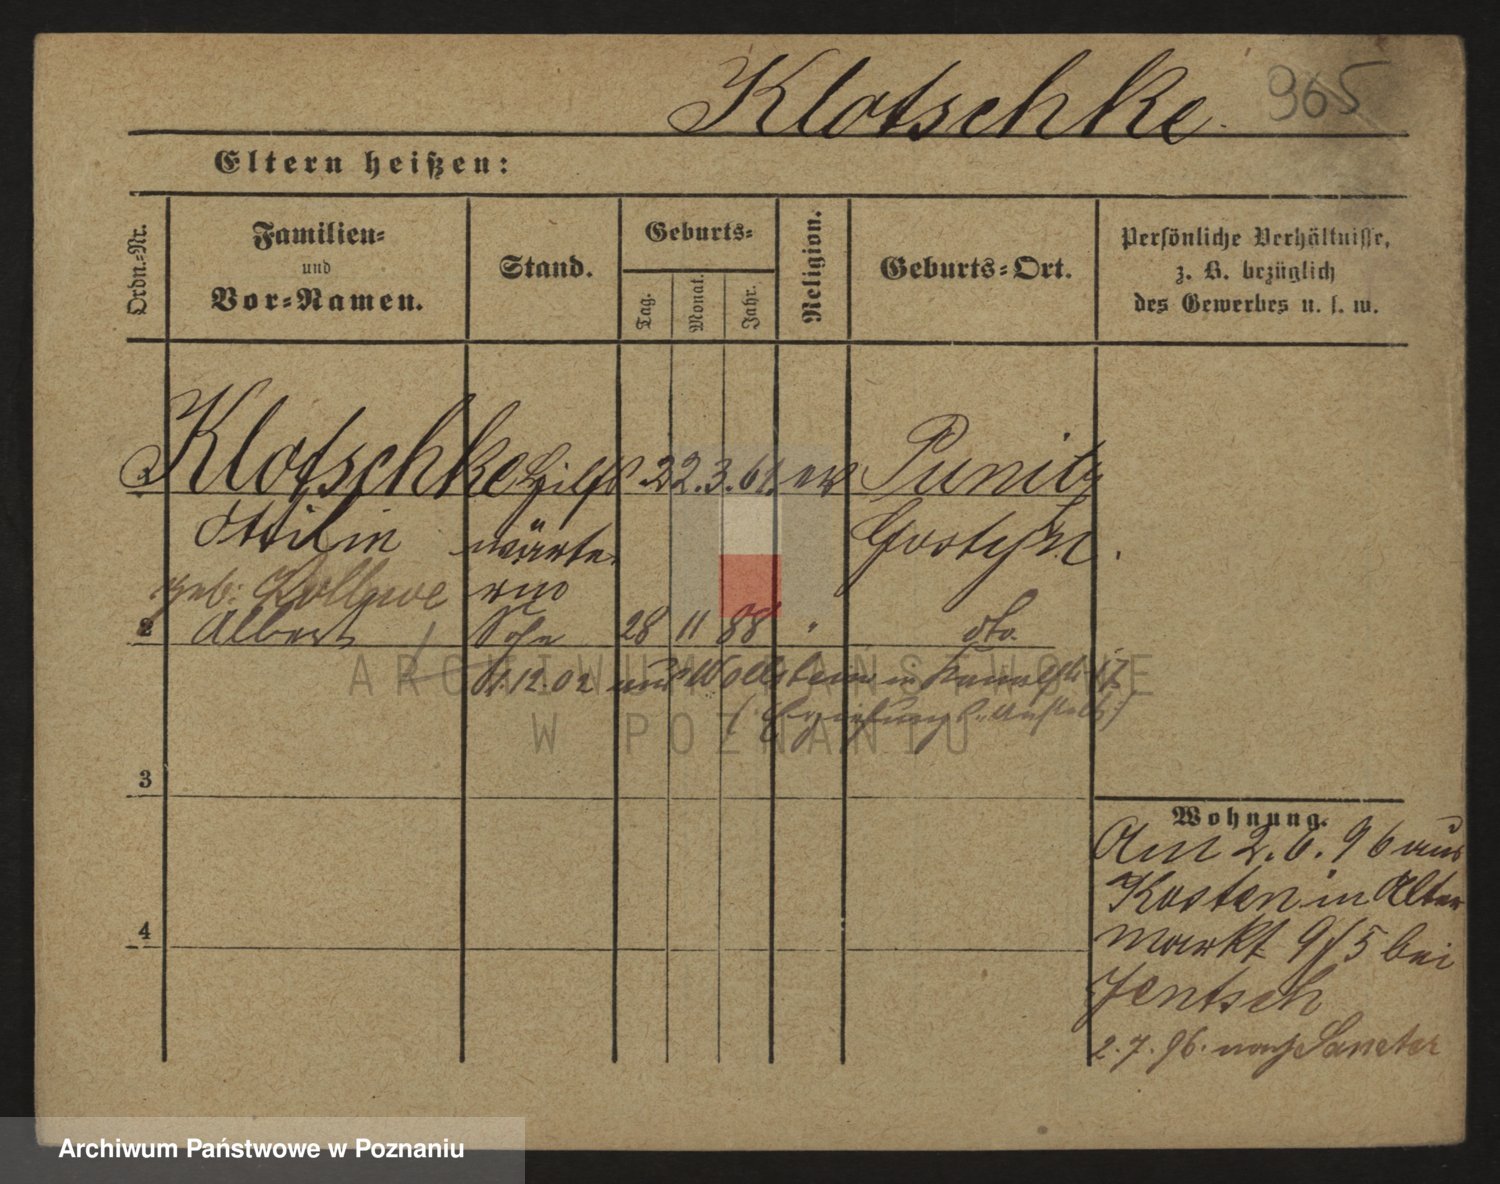 Klotschke 965
Eltern heißen:
Ordn.-Nr.
Familien-
und
Vor-Namen.
Stand.
Geburts-
Tag.
Monat.
Jahr.
Religion.
Geburts-Ort.
Persönliche Verhältnisse,
z. B. bezüglich
des Gewerbes u. s. w.
Klotschke Hilfs 22. 3. 61. ev Punitz
Ottilie wärte Gostyn.
geb. rin
2 Albert Sohn 28 11 88 " dto.
12.02 aus Wollstein in Kanalstr 17
(Erziehungs. Anstalt)
3
4
Wohnung.
Am 2. 6. 96 aus
Kosten in Alter
markt 9/5 bei
Jentsch
2. 7. 96. nach
ARCHIWUM PAŃSTWOWE
W POZNANIU
Archiwum Państwowe w Poznaniu